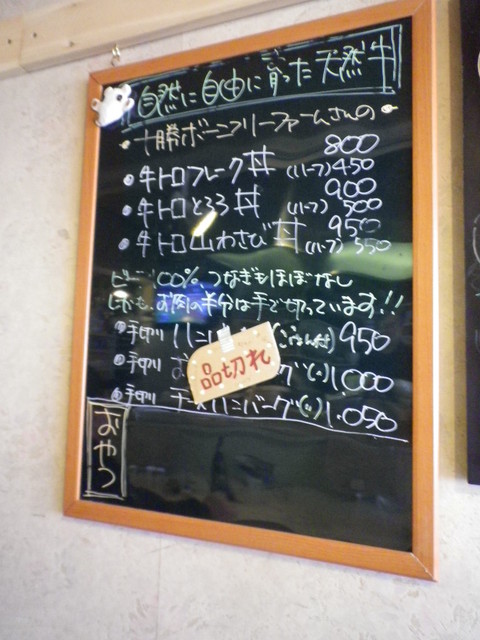 自然に自由に育った天然牛
十勝ボーンフリーファームさんの
牛トロフレーク丼 800
(ハーフ)450
牛トロとろろ丼 900
(ハーフ) 500
牛トロ山わさび丼 950
(ハーフ) 550
ビーフ100%、つなぎもほぼなし
しかも、お肉の半分は手で切っています!!
手切り ハン (ごはん付) 950
手切り お グ(〃) 1,000
手切り チーズハンバーグ(〃) 1,050
品切れ
おやつ